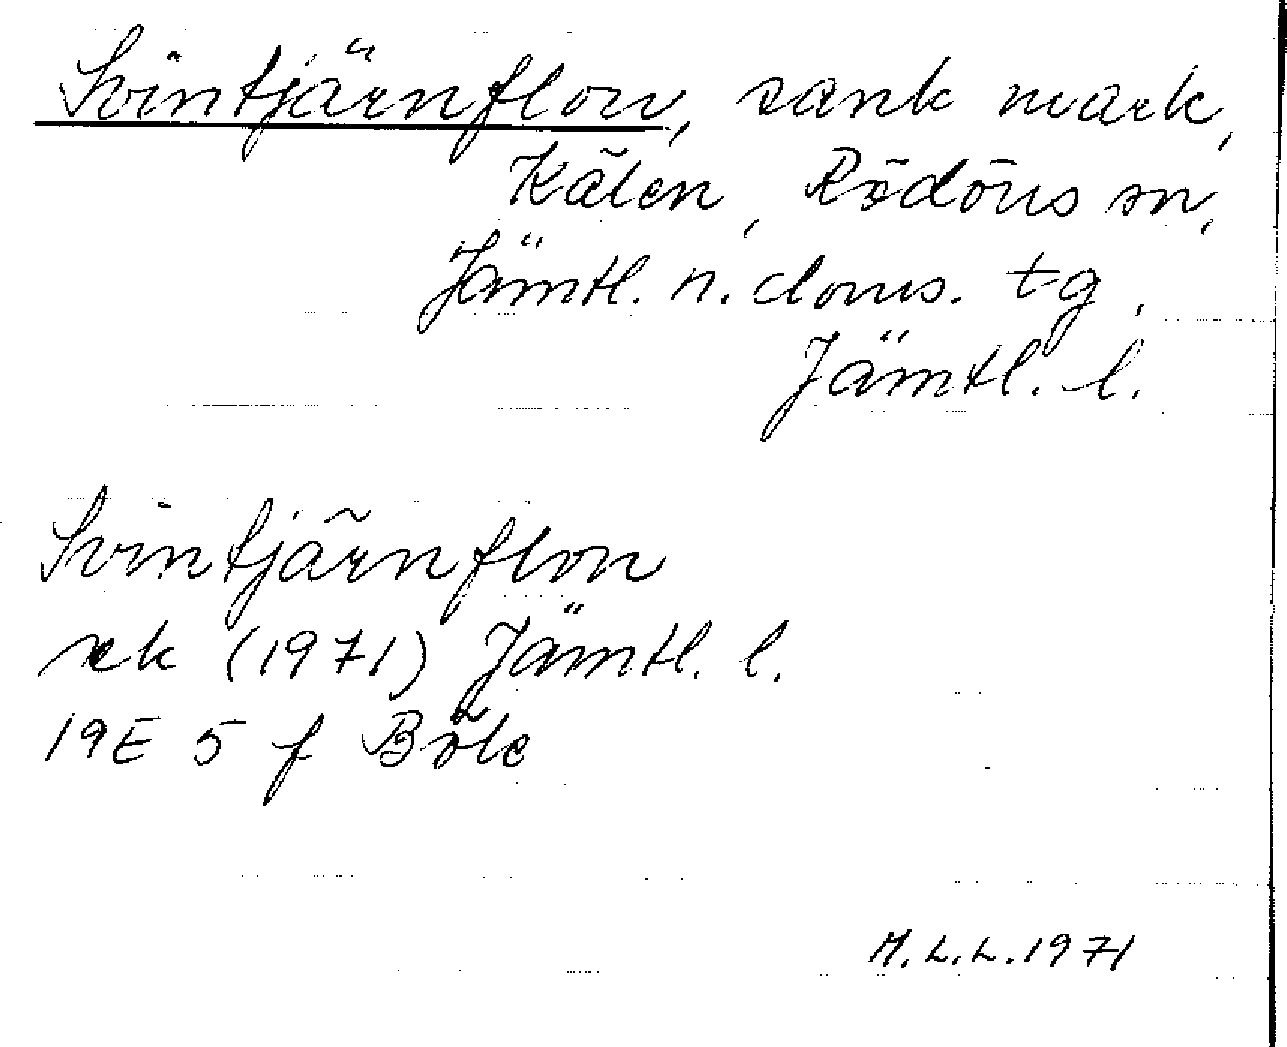 Svintjärnflon, sank mark,
Kälen, Rödöns sn,
Jämtl. n. doms. tg,
Jämtl. l.
Svintjärnflon
rek (1971) Jämtl. l.
19E 5 f Böle
M.L.L. 1971